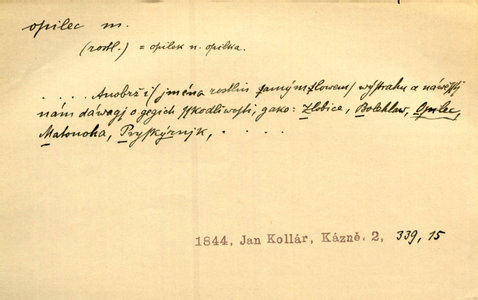 opilec m.
(rostl.) = opilek n. opilka.
. . . . Anobrž i jména rostlin samým slowem výstrahu a náwěští
nám dáwagj o gegich sskodliwosti, gako: Zlobice, Bolehlaw, Opilec,
Matonoha, Pryskýrnjk, . . . .
1844, Jan Kollár, Kázně. 2, 339, 15